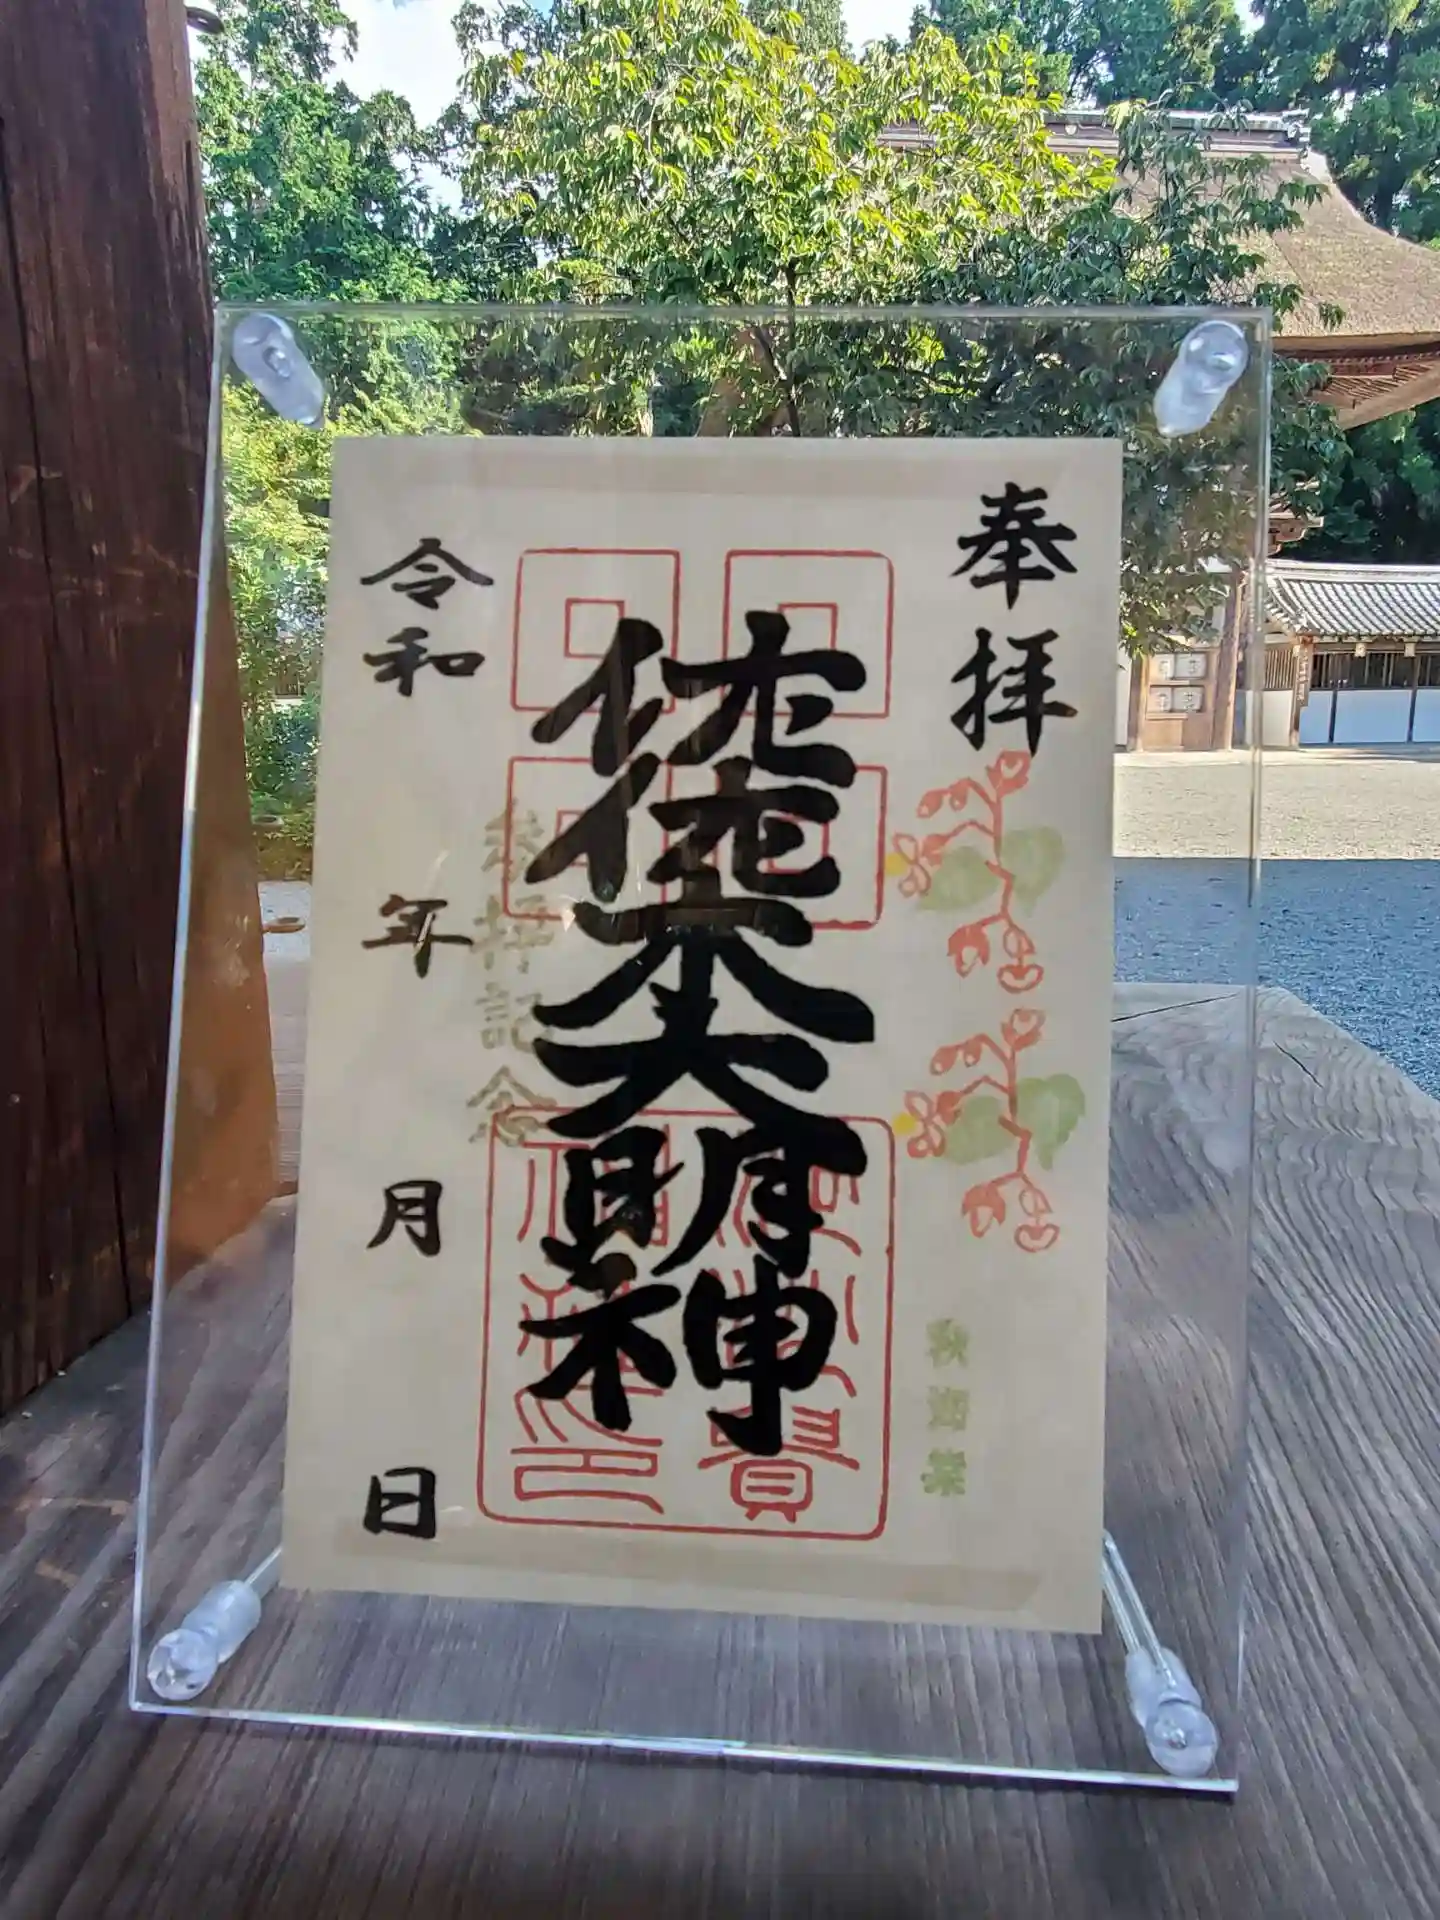 奉拝
佐佐木大明神
参拝記念
秋海棠
令和 年 月 日